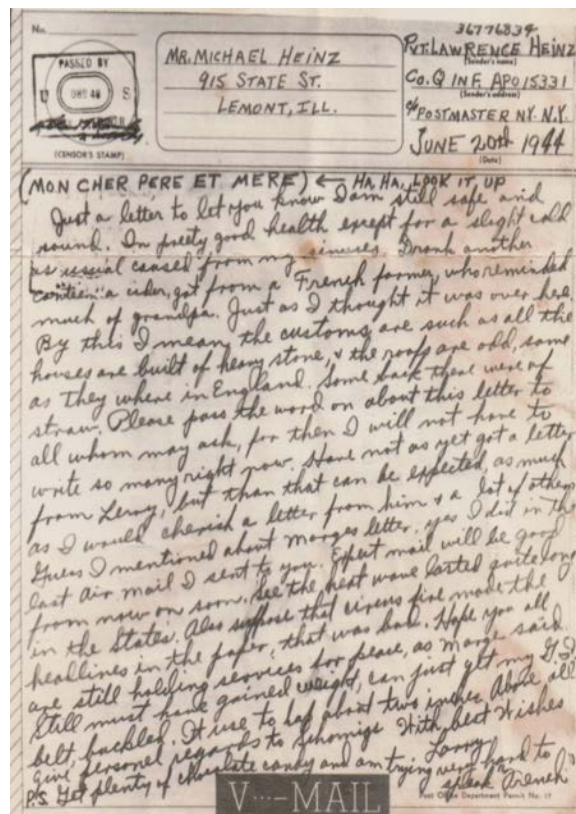 No.
PASSED BY
U S
(CENSOR'S STAMP)
MR. MICHAEL HEINZ
915 STATE ST.
LEMONT, ILL.
36776834
PVT. LAWRENCE HEINZ
(Sender's name)
CO. Q INF. APO 15331
(Sender's address)
c/o POSTMASTER NY. N.Y.
JUNE 20th 1944
(Date)
(MON CHER PERE ET MERE) ← HA, HA, LOOK IT UP
Just a letter to let you know I am still safe and
sound. In pretty good health except for a slight cold
as usual caused from my sinuses. Drank another
canteen a cider, got from a French farmer, who reminded
much of grandpa. Just as I thought it was over here.
By this I mean the customs, are such as all the
houses are built of heavy stone, & the roofs are odd, some
as they where in England. Some back there were of
straw. Please pass the word on about this letter to
all whom may ask, for then I will not have to
write so many right now. Have not as yet got a letter
from Leroy, but than that can be expected, as much
as I would cherish a letter from him & a lot of others
Guess I mentioned about Marges letter, yes I did in the
last air mail I sent to you. Expect mail will be good
from now on soon. See the heat wave lasted quite long
in the States. Also suppose that circus fire made the
headlines in the paper, that was bad. Hope you all
are still holding services for peace, as Marge said.
Still must have gained weight, can just get my G.I.
belt, buckled. It use to lap about two inches. Above all
give personel regards to With best Wishes
Larry
P.S. Get plenty of chocolate candy and am trying very hard to
speak "French"
V···-MAIL
Post Office Department Permit No. 17